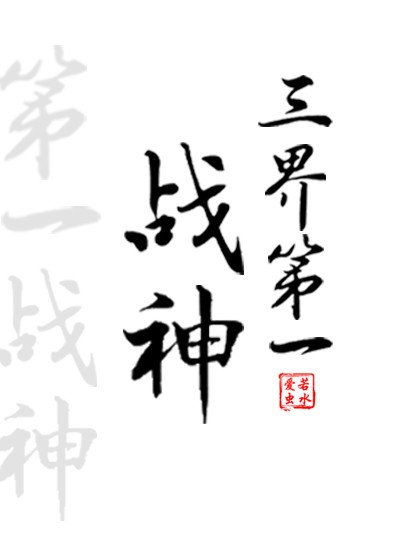 三界第一
战神
若水
爱虫
第一战神